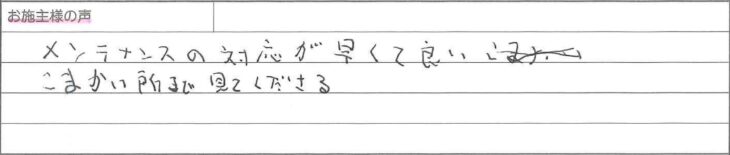 お施主様の声
メンテナンスの対応が早くて良い
こまかい所まで見てくださる